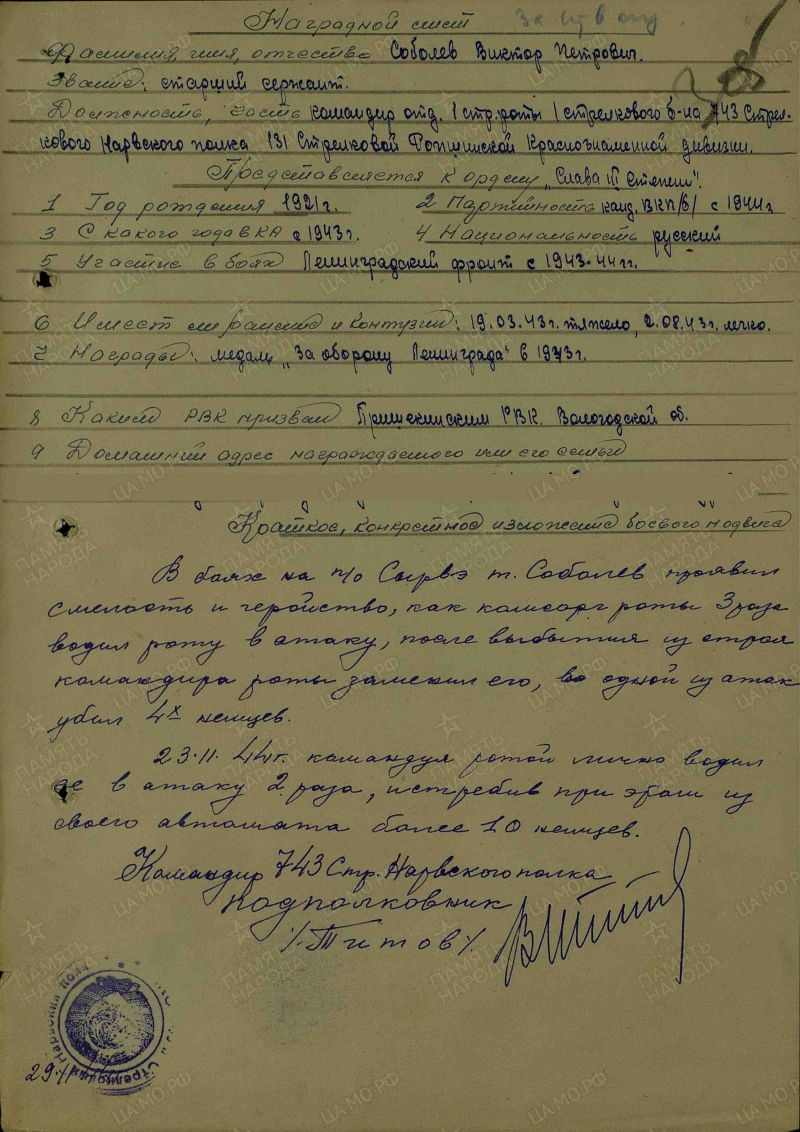 Наградной лист
Фамилия, имя, отчество Соболев Виктор Петрович.
Звание: старший сержант.
Должность, часть командир отд. 1 стр. роты 1 стрелкового б-на 743 Стрел-
кового Нарвского полка 131 Стрелковой Ропшинской Краснознаменной дивизии.
Представляется к ордену „Слава III степени".
1 Год рождения 1921 г. 2 Партийность канд. ВКП/б/ с 1944 г
3 С какого года в КА с 1943 г. 4 Национальность русский
5 Участие в боях Ленинградский фронт с 1943-44 гг.
6 Имеет ли ранения и контузии: 19.03.43 г. тяжело, 2.08.43 г. легко.
7 Награды: медаль „За оборону Ленинграда" в 1943 г.
8 Каким РВК призван РВК. Вологодской об.
9 Домашний адрес награждаемого или его семьи
Краткое, конкретное изложение боевого подвига
В боях на п/о Сырвэ т. Соболев проявил
смелость и геройство, как комсорг роты 3 раза
водил роту в атаку, после выбытия из строя
командира роты заменил его, во одной из атак
убил 4х немцев.
23.11.44 г. командуя ротой лично водил
ее в атаку 2 раза, истребив при этом из
своего автомата более 10 немцев.
Командир 743 Стр. Нарвского полка
подполковник
/Титов/.
29.11.44
ПАМЯТЬ НАРОДА
ЦА МО РФ